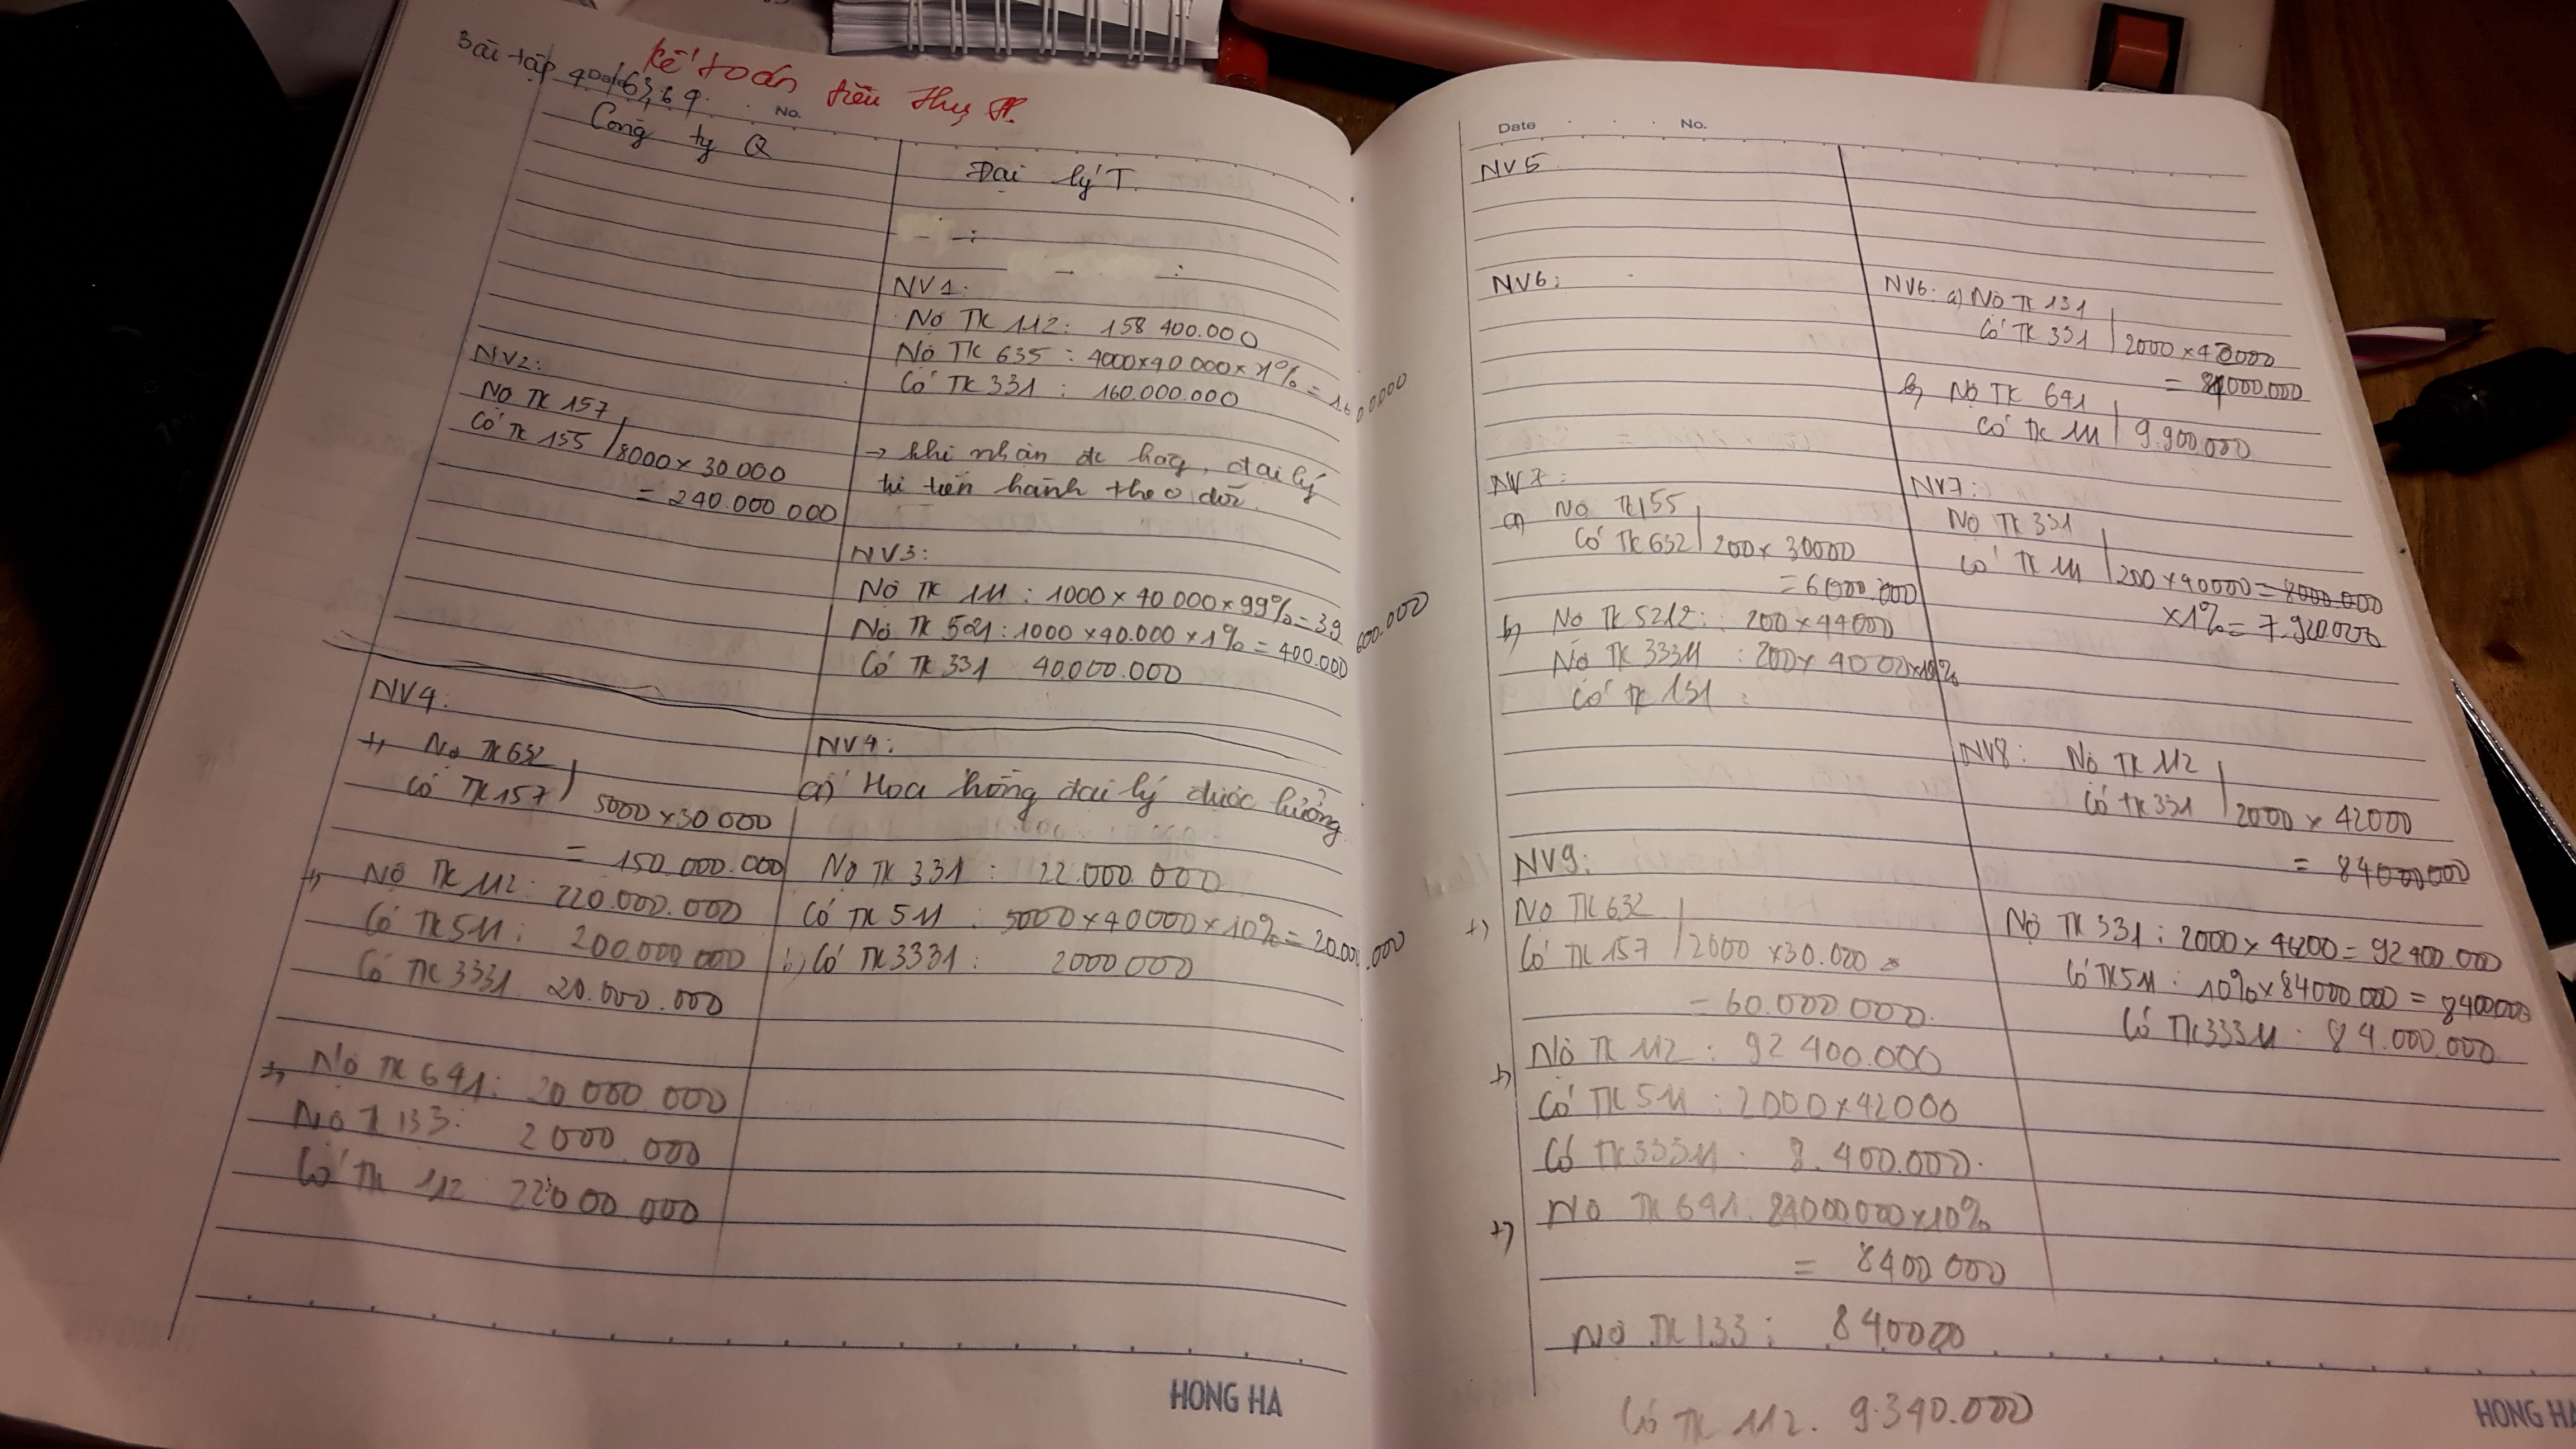 Bài tập 4 Date/63,69.
kế toán tiêu thụ
No.
Công ty Q
Đại lý T.
NV1:
Nợ TK 112: 158 400.000
Nợ TK 635 : 4000x40 000x1% = 1600000
Có TK 331 : 160.000.000
NV2:
Nợ TK 157
Có TK 155 8000 x 30 000
= 240.000 000
→ khi nhận đc hàng, đại lý
tiến hành theo dõi.
NV3:
Nợ TK 111 : 1000 x 40 000 x 99% = 39 600.000
Nợ TK 521 : 1000 x 40.000 x 1% = 400.000
Có TK 331 40.000.000
NV4:
+, Nợ TK 632
Có TK 157 5000 x 30 000
= 150 000.000
+, Nợ TK 112: 220.000.000
Có TK 511: 200 000 000
Có TK 3331 20.000.000
+, Nợ TK 641: 20 000 000
Nợ T 133: 2 000 000
Có TK 112 22000 000
NV4:
a) Hoa hồng đại lý được hưởng
Nợ TK 331 : 22.000 000
Có TK 511 : 5000 x 40000 x 10% = 20.000.000
b, Có TK 3331 : 2000 000
HONG HA
Date No.
NV5
NV6:
NV6: a) Nợ TK 131
Có TK 331 2000 x 42000
= 84000.000
b, Nợ TK 641
Có TK 111 9.900 000
NV7:
a) Nợ TK155
Có TK 632 200 x 30000
= 6000.000
b, Nợ TK 5212: 200 x 44000
Nợ TK 33311 : 200 x 40 00x10%
Có TK 131 :
NV7:
Nợ TK 331
Có TK 111 200 x 40000 = 8000.000
x1% = 7.920.000
NV8: Nợ TK 112
Có TK 331 2000 x 42000
= 84000000
NV9:
+, Nợ TK 632
Có TK 157 2000 x 30.000
= 60.000.000
+, Nợ TK 112 : 92 400.000
Có TK 511 : 2000 x 42000
Có TK 33311 . 8.400.000.
+, Nợ TK 641: 84000000x10%
= 8400 000
Nợ TK 133: 840000
Có TK 112. 9.340.000
Nợ TK 331: 2000 x 46200 = 92 400.000
Có TK 511 : 10% x 84000 000 = 8400000
Có TK 33311 : 84.000.000
HONG HA